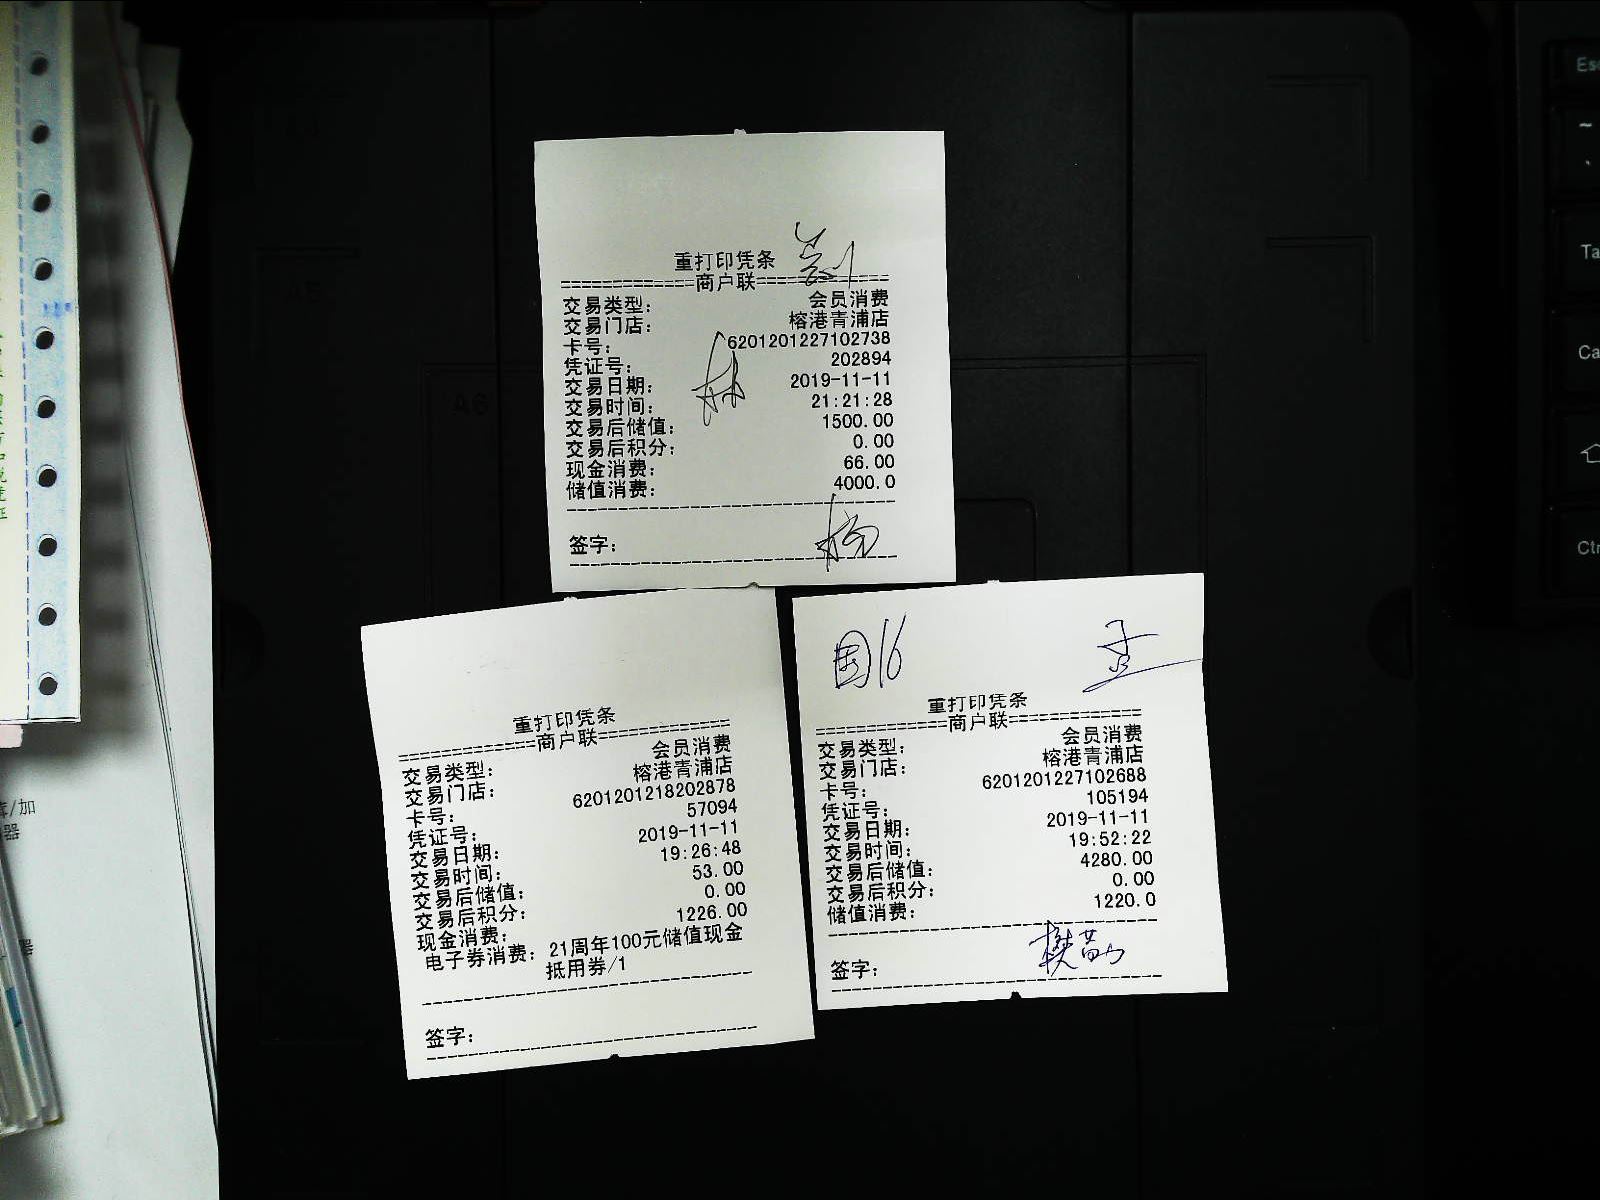 重打印凭条
============商户联============
交易类型: 会员消费
交易门店: 榕港青浦店
卡号: 6201201227102738
凭证号: 202894
交易日期: 2019-11-11
交易时间: 21:21:28
交易后储值: 1500.00
交易后积分: 0.00
现金消费: 66.00
储值消费: 4000.0
签字: 杨
重打印凭条
============商户联============
交易类型: 会员消费
交易门店: 榕港青浦店
卡号: 6201201218202878
凭证号: 57094
交易日期: 2019-11-11
交易时间: 19:26:48
交易后储值: 53.00
交易后积分: 0.00
现金消费: 1226.00
电子券消费: 21周年100元储值现金
抵用券/1
签字:
重打印凭条
============商户联============
交易类型: 会员消费
交易门店: 榕港青浦店
卡号: 6201201227102688
凭证号: 105194
交易日期: 2019-11-11
交易时间: 19:52:22
交易后储值: 4280.00
交易后积分: 0.00
储值消费: 1220.0
签字:
A6
Esc
~
Ta
Ca
Ctr